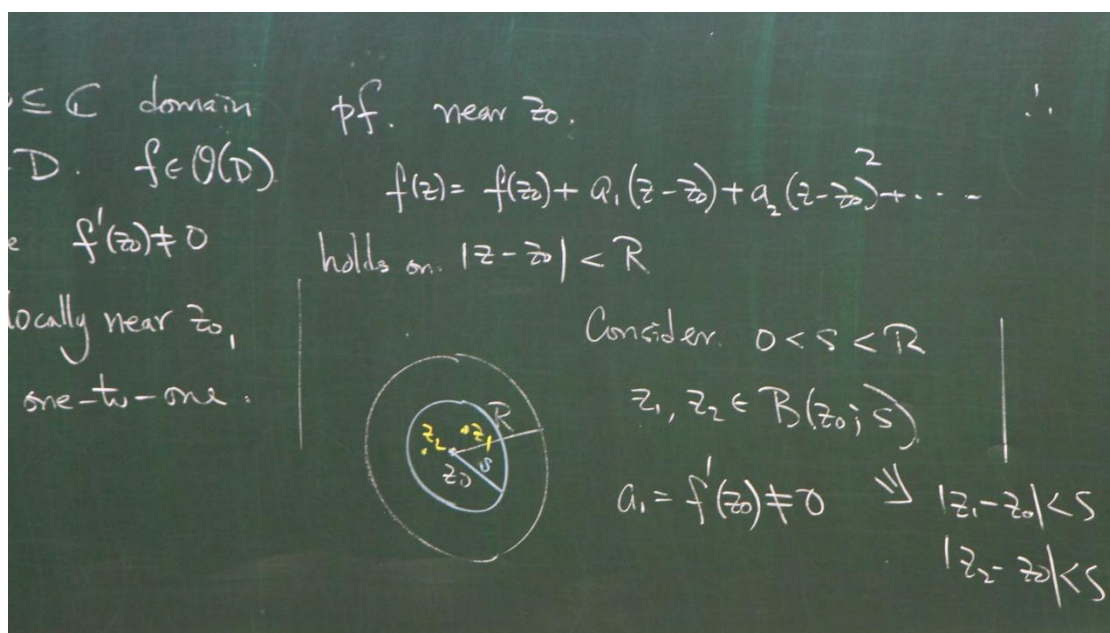 ⊆ ℂ domain
D. f∈O(D)
f'(z₀)≠0
locally near z₀,
one-to-one.
pf. near z₀.
f(z)= f(z₀)+ a₁(z-z₀)+a₂(z-z₀)²+....
holds on |z-z₀| < R
Consider 0<s<R
z₁, z₂ ∈ B(z₀; s)
a₁= f'(z₀)≠0 ⇒ |z₁-z₀|<s
|z₂-z₀|<s
R
z₂ z₁
s
z₀
∴